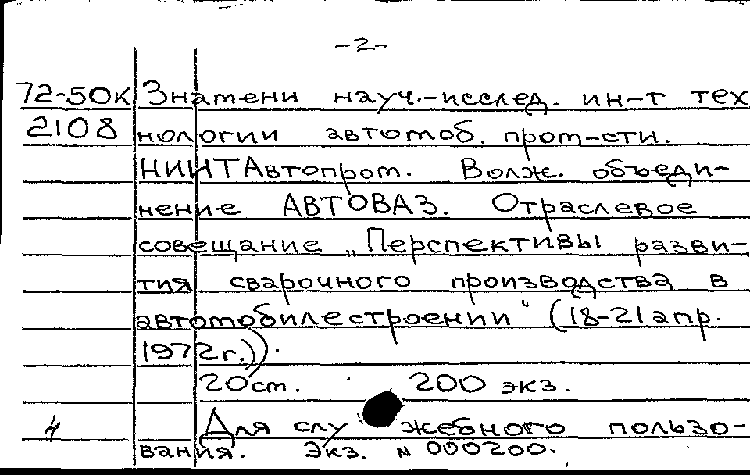 -2-
72-50К Знамени науч.-исслед. ин-т тех
2108 нологии автомоб. пром-сти.
НИИТАвтопром. Волж. объеди-
нение АВТОВАЗ. Отраслевое
совещание „Перспективы разви-
тия сварочного производства в
автомобилестроении" (18-21 апр.
1972г.)).
20 ст. 200 экз.
4 Для служебного пользо-
вания. Экз. N 000200.